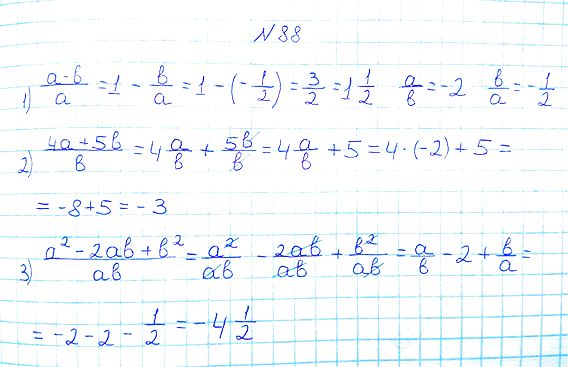 N 88
1) (a-b)/a = 1 - b/a = 1 - (-1/2) = 3/2 = 1 1/2   a/b = -2   b/a = -1/2
2) (4a+5b)/b = 4 a/b + 5b/b = 4 a/b + 5 = 4·(-2) + 5 =
= -8+5 = -3
3) (a² - 2ab + b²)/ab = a²/ab - 2ab/ab + b²/ab = a/b - 2 + b/a =
= -2 - 2 - 1/2 = -4 1/2